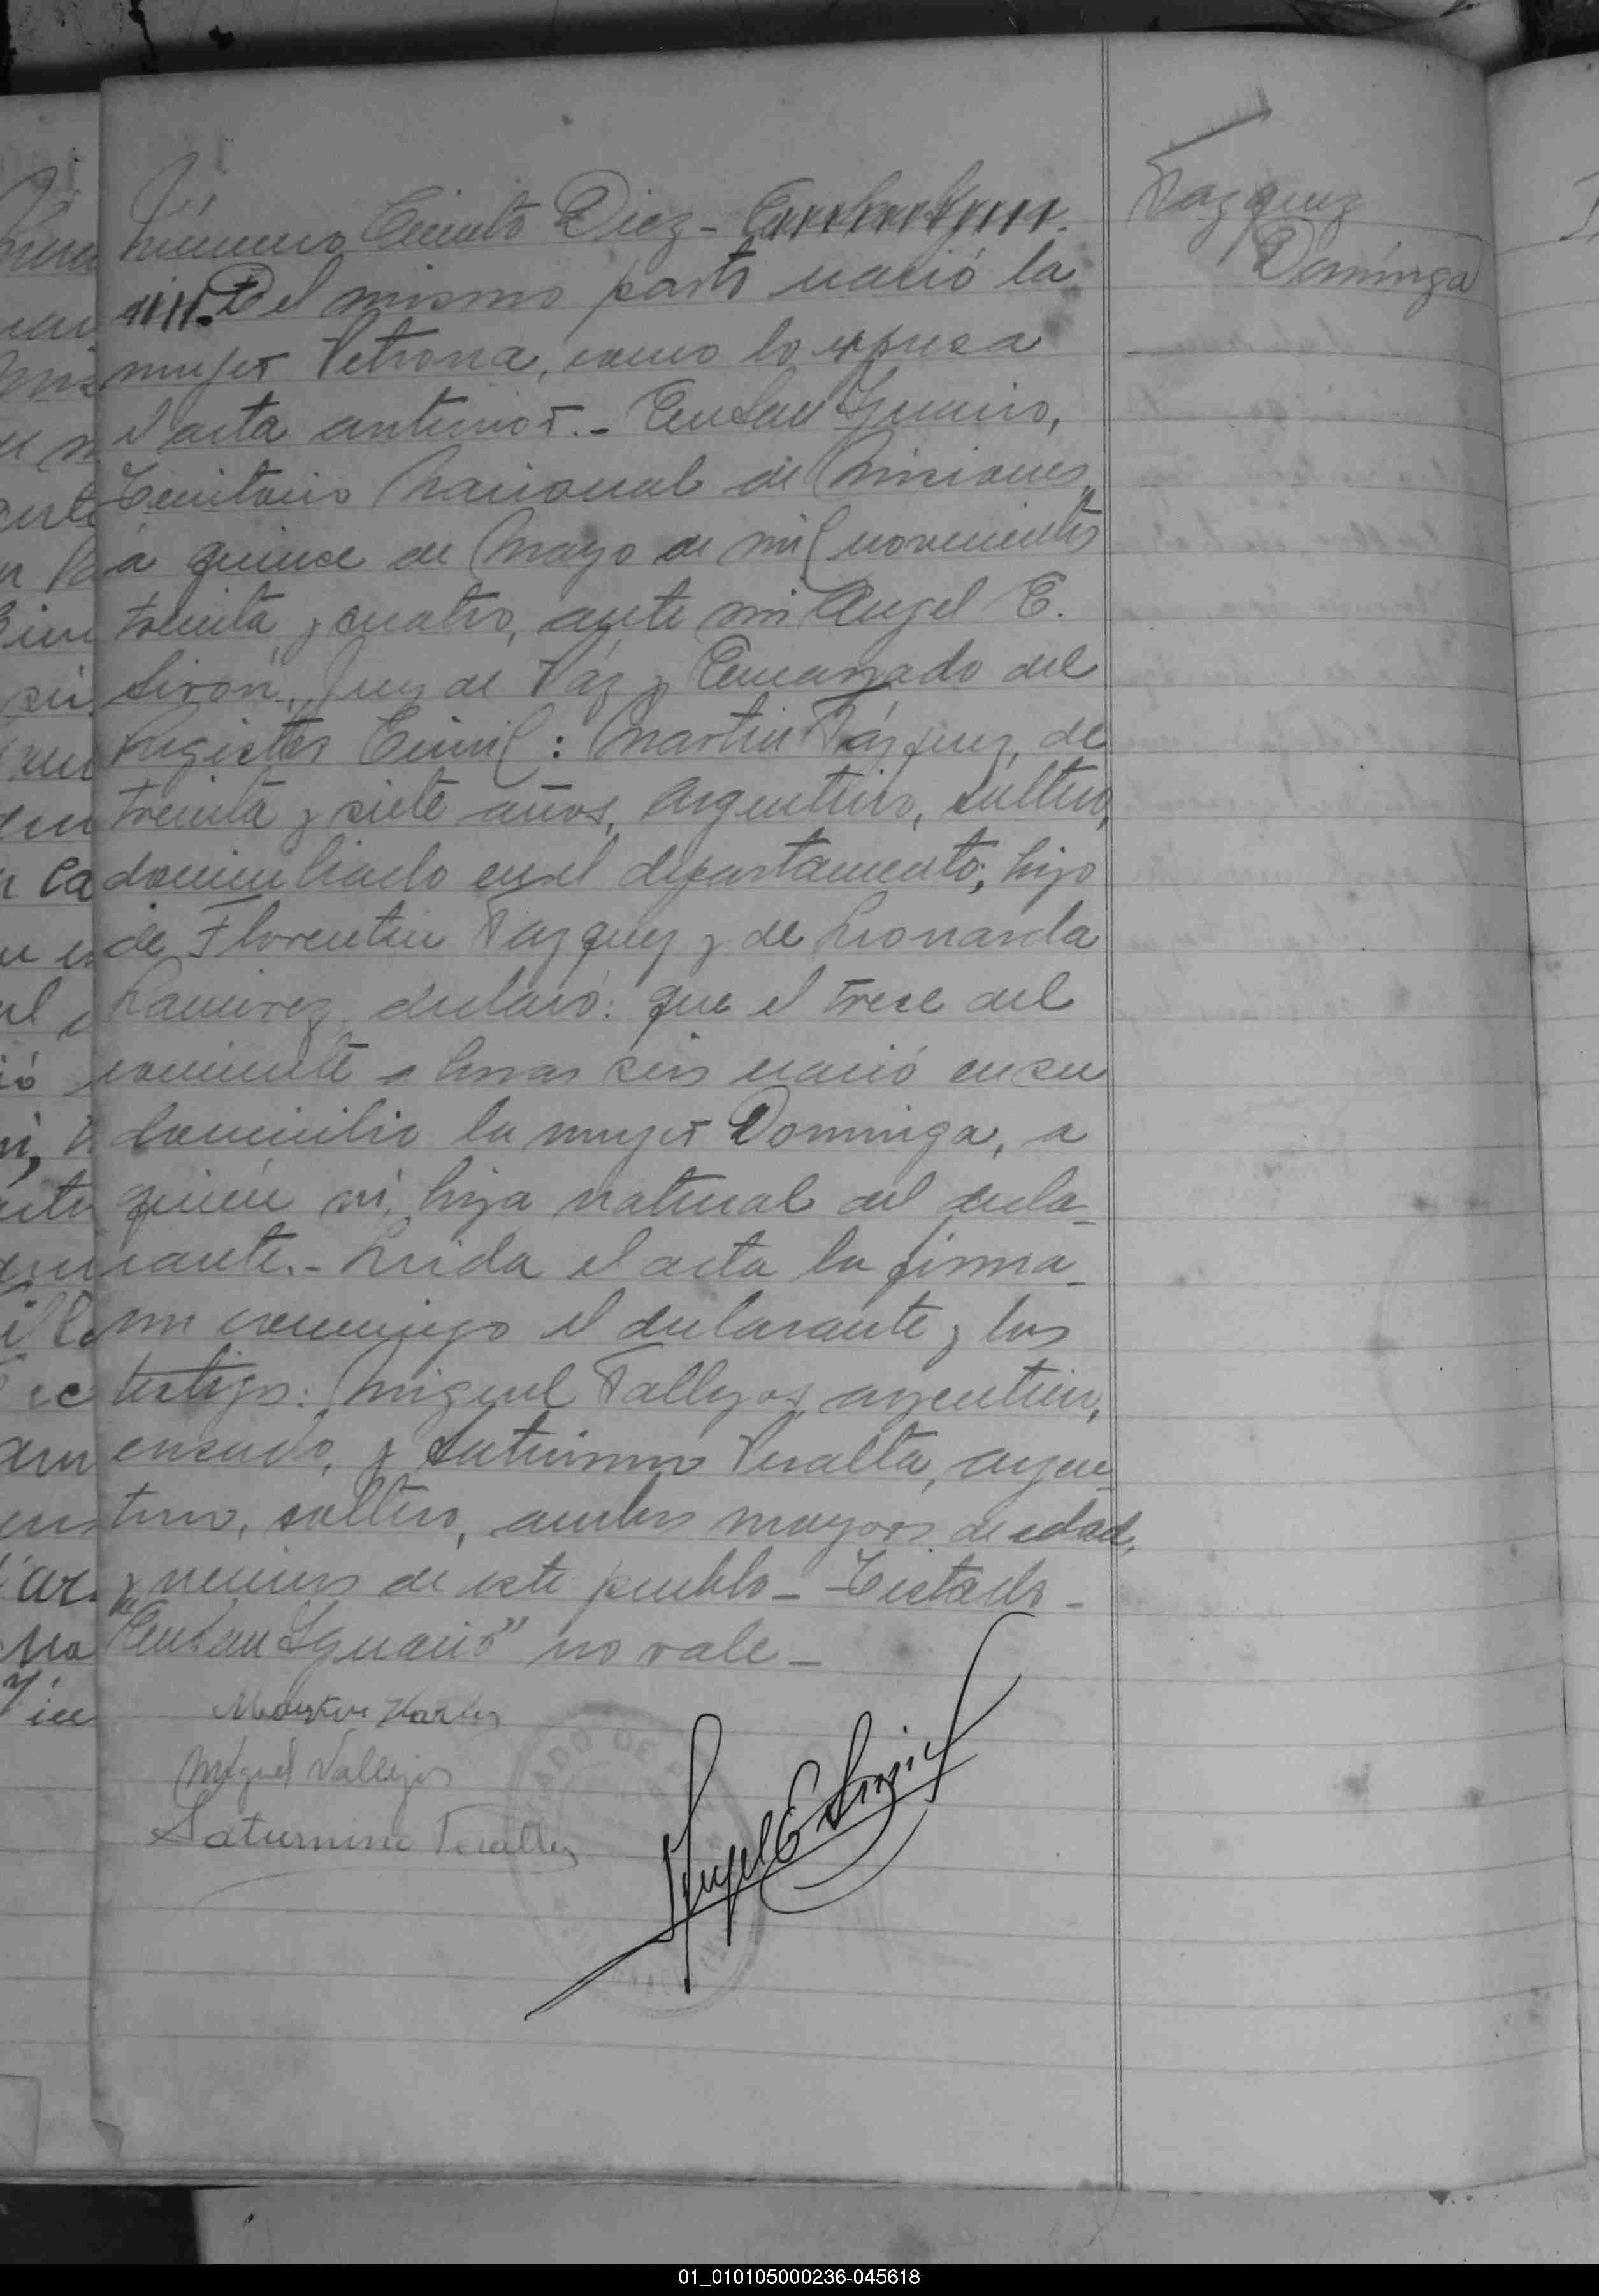 Vazquez
Dominga
Número Ciento Diez -
Del mismo parto nació la
mujer Petrona, como lo expresa
el acta anterior. - En San Ignacio,
Territorio Nacional de Misiones,
a quince de Mayo de mil novecientos
treinta y cuatro, ante mi Angel E.
Sirón, Juez de Paz y Encargado del
Registro Civil: Martin Vázquez, de
treinta y siete años, Argentino, soltero,
domiciliado en el departamento, hijo
de Florentin Vazquez y de Leonarda
Ramirez, declaró: que el trece del
corriente a horas seis nació en su
domicilio la mujer Dominga, a
quien vi, hija natural del decla-
rante. - Leida el acta la firma-
ron conmigo el declarante y los
testigos: Miguel Vallejos, argentino,
casado, y Saturnino Peralta, argen-
tino, soltero, ambos mayores de edad,
y vecinos de este pueblo - Testado -
"En San Ignacio" no vale -
Miguel Vallejos
Saturnino Peralta
Angel E Sirón
ADO DE P
01_010105000236-045618